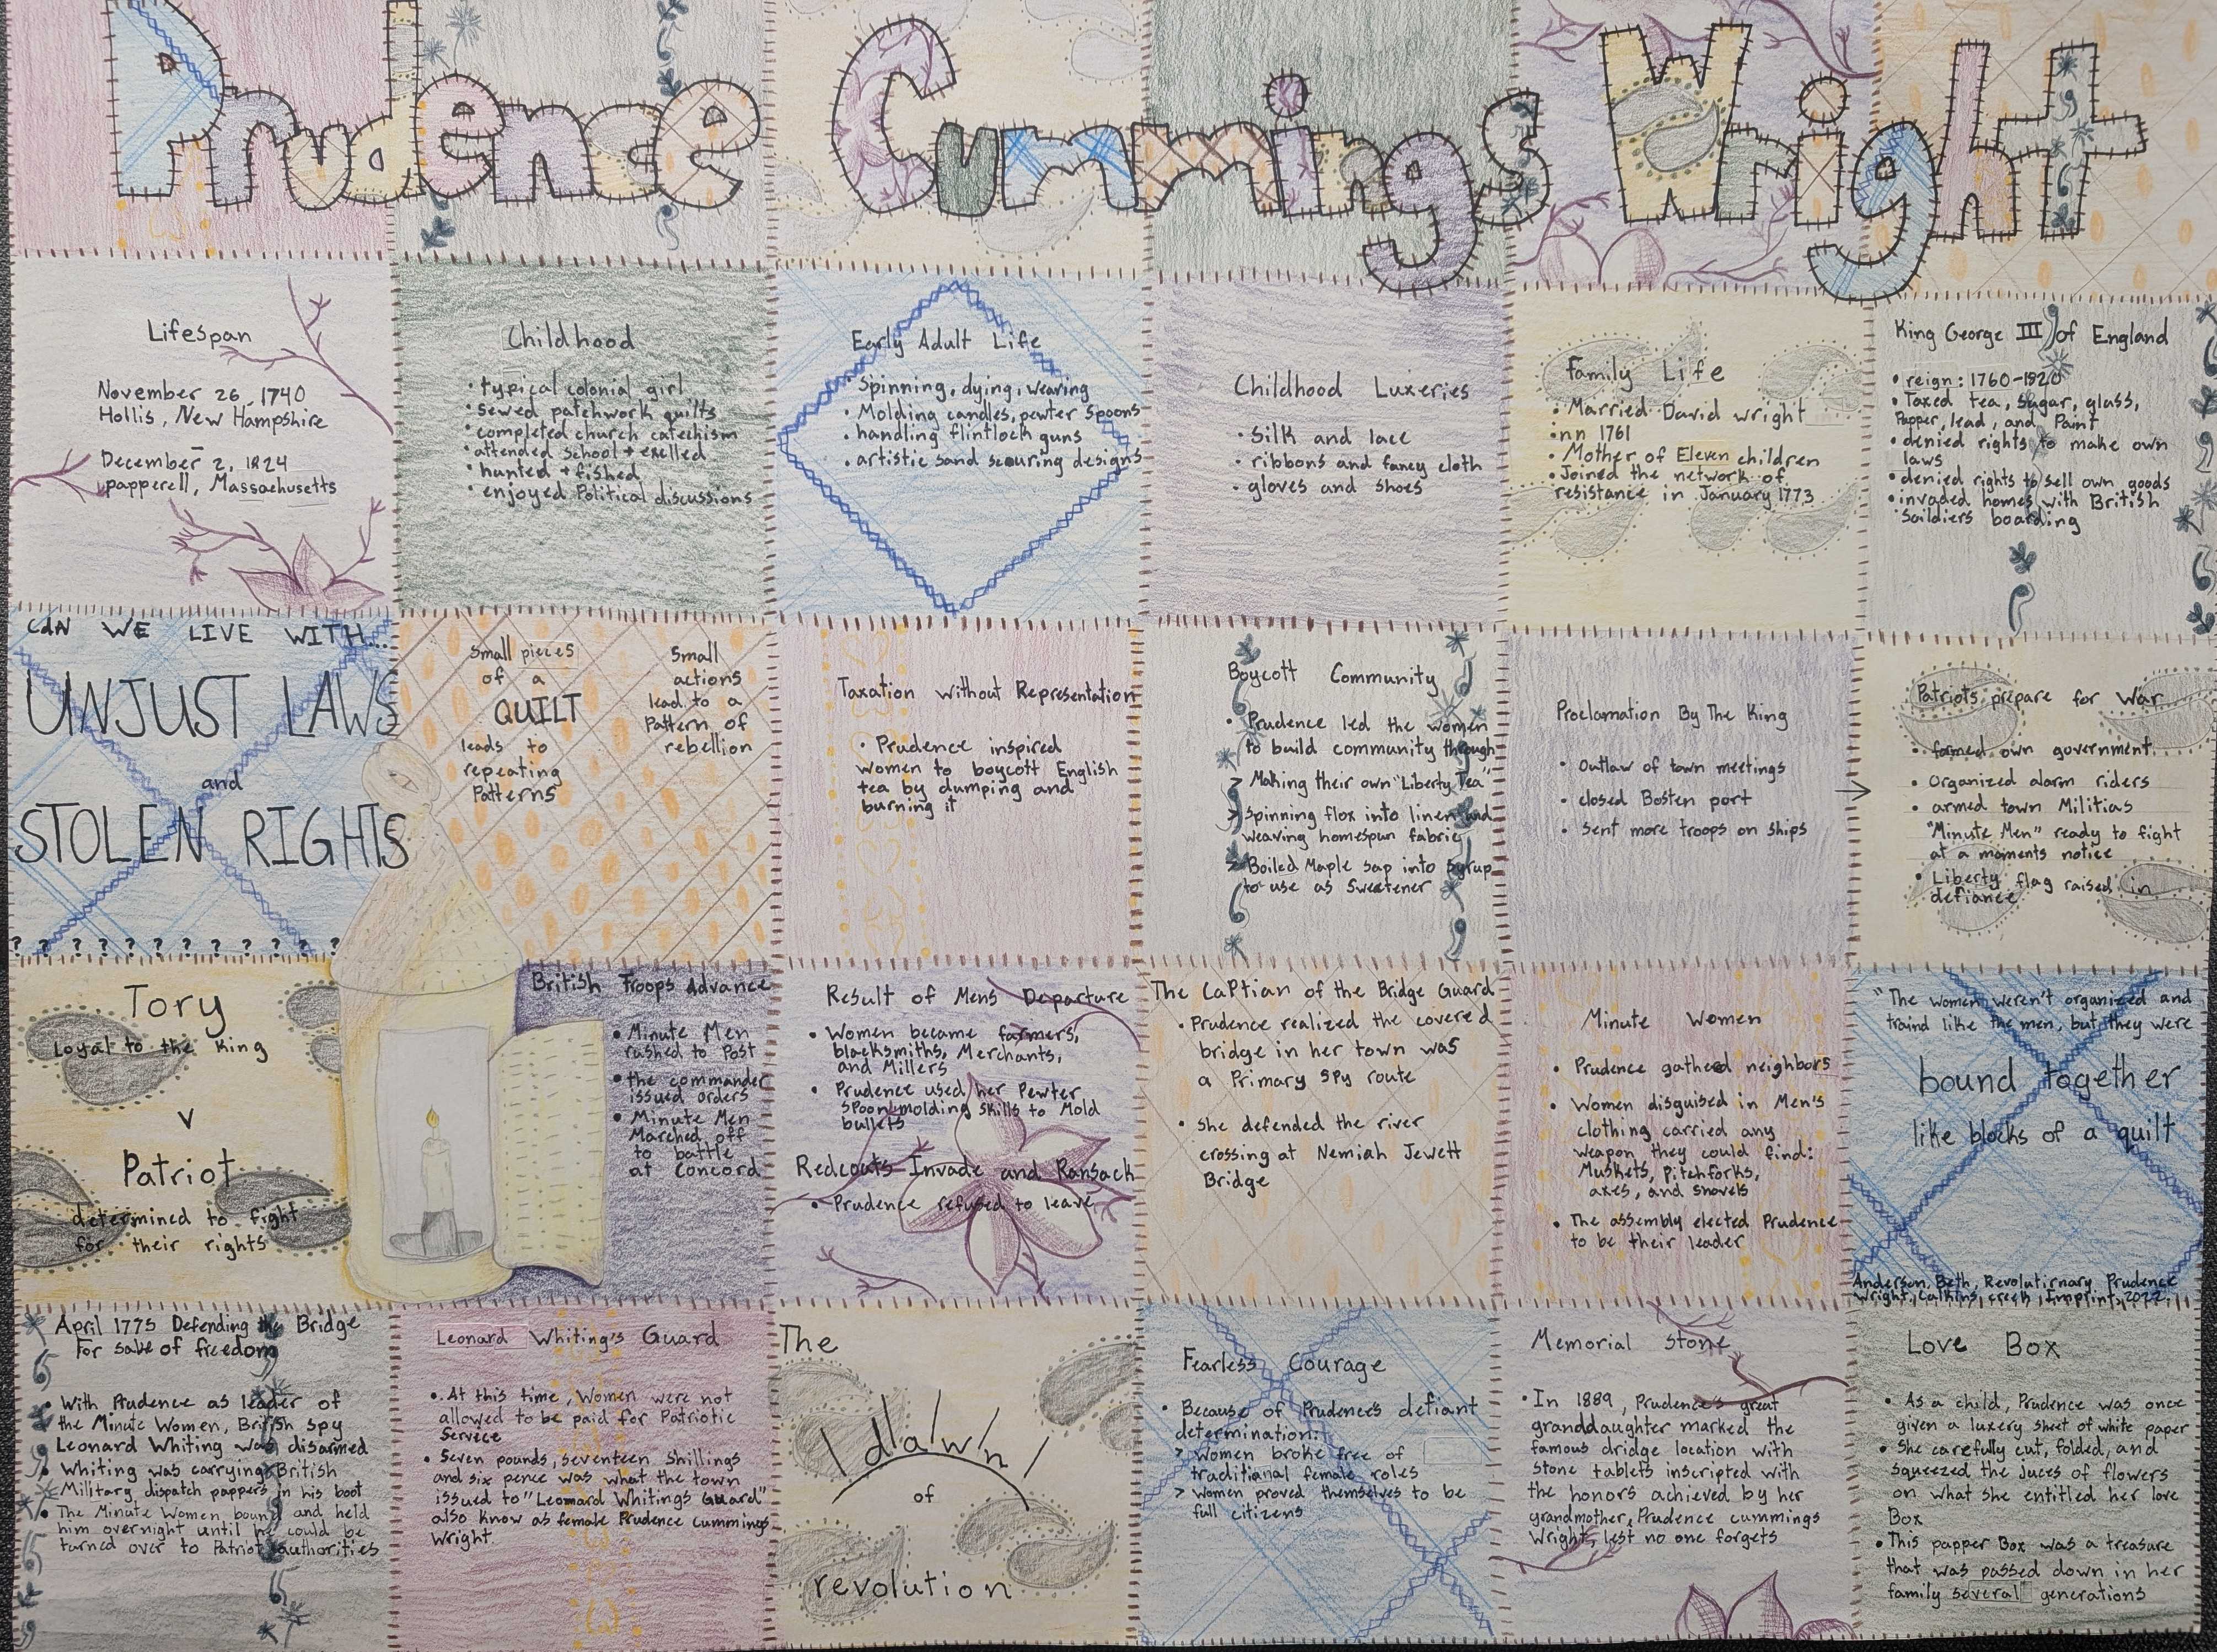 Prudence Cummings Wright
Lifespan
November 26, 1740
Hollis, New Hampshire
–
December 2, 1824
papperell, Massachusetts
Childhood
• typical colonial girl
• sewed patchwork quilts
• completed church catechism
• attended school + exelled
• hunted + fished
• enjoyed Political discussions
Early Adult Life
• Spinning, dying, weaving
• Molding candles, pewter spoons
• handling flintlock guns
• artistic sand scouring designs
Childhood Luxeries
• Silk and lace
• ribbons and fancy cloth
• gloves and shoes
Family Life
• Married David wright
inn 1761
• Mother of Eleven children
• Joined the network of
resistance in January 1773
King George III of England
• reign: 1760-1820
• Taxed tea, sugar, glass,
Papper, lead, and Paint
• denied rights to make own
laws
• denied rights to sell own goods
• invaded homes with British
Soildiers boarding
CAN WE LIVE WITH...
UNJUST LAWS
and
STOLEN RIGHTS
? ? ? ? ? ? ? ? ? ? ? ?
Small pieces
of a
QUILT
leads to
repeating
Patterns
Small
actions
lead to a
Pattern of
rebellion
Taxation Without Representation
• Prudence inspired
women to boycott English
tea by dumping and
burning it
Boycott Community
• Prudence led the women
to build community through
> Making their own "Liberty Tea"
> Spinning flax into linen and
weaving homespun fabric
> Boiled Maple sap into Syrup
to use as Sweetener
Proclamation By The King
• Outlaw of town meetings
• closed Bosten port
• sent more troops on ships
Patriots prepare for War
• formed own government
• Organized alarm riders
• armed town Militias
"Minute Men" ready to fight
at a moments notice
• Liberty flag raised in
defiance
Tory
Loyal to the King
V
Patriot
determined to fight
for their rights
British Troops Advance
• Minute Men
rushed to Post
• the commander
issued orders
• Minute Men
Marched off
to battle
at Concord
Result of Mens Departure
• Women became farmers,
blacksmiths, Merchants,
and Millers
• Prudence used her Pewter
spoon molding skills to Mold
bullets
Redcoats Invade and Ransack
• Prudence refused to leave
The Captian of the Bridge Guard
• Prudence realized the covered
bridge in her town was
a Primary spy route
• She defended the river
crossing at Nemiah Jewett
Bridge
Minute Women
• Prudence gathered neighbors
• Women disguised in Men's
clothing carried any
weapon they could find:
Muskets, pitchforks,
axes, and shovels
• The assembly elected Prudence
to be their leader
"The women weren't organized and
traind like the men, but they were
bound together
like blocks of a quilt
Anderson, Beth, Revolutirnary Prudence
Wright, Calkins creek, Imprint, 2022.
April 1775 Defending the Bridge
For sake of freedom
• With Prudence as leader of
the Minute Women, British spy
Leonard Whiting was disarmed
• Whiting was carrying British
Military dispatch pappers in his boot
• The Minute Women bound and held
him overnight until he could be
turned over to Patriot authorities
Leonard Whiting's Guard
• At this time, Women were not
allowed to be paid for Patriotic
Service
• Seven pounds, seventeen Shillings
and six pence was what the town
issued to "Leonard Whitings Guard"
also know as female Prudence cummings
Wright.
The
dawn
of
revolution
Fearless Courage
• Because of Prudence's defiant
determination:
> Women broke free of
traditional female roles
> Women proved themselves to be
full citizens
Memorial Stone
• In 1889, Prudence's great
granddaughter marked the
famous dridge location with
stone tablets inscripted with
the honors achieved by her
grandmother, Prudence cummings
Wright, lest no one forgets
Love Box
• As a child, Prudence was once
given a luxery sheet of white paper
• She carefully cut, folded, and
squeezed the juces of flowers
on what she entitled her love
Box
• This papper Box was a treasure
that was passed down in her
family several generations